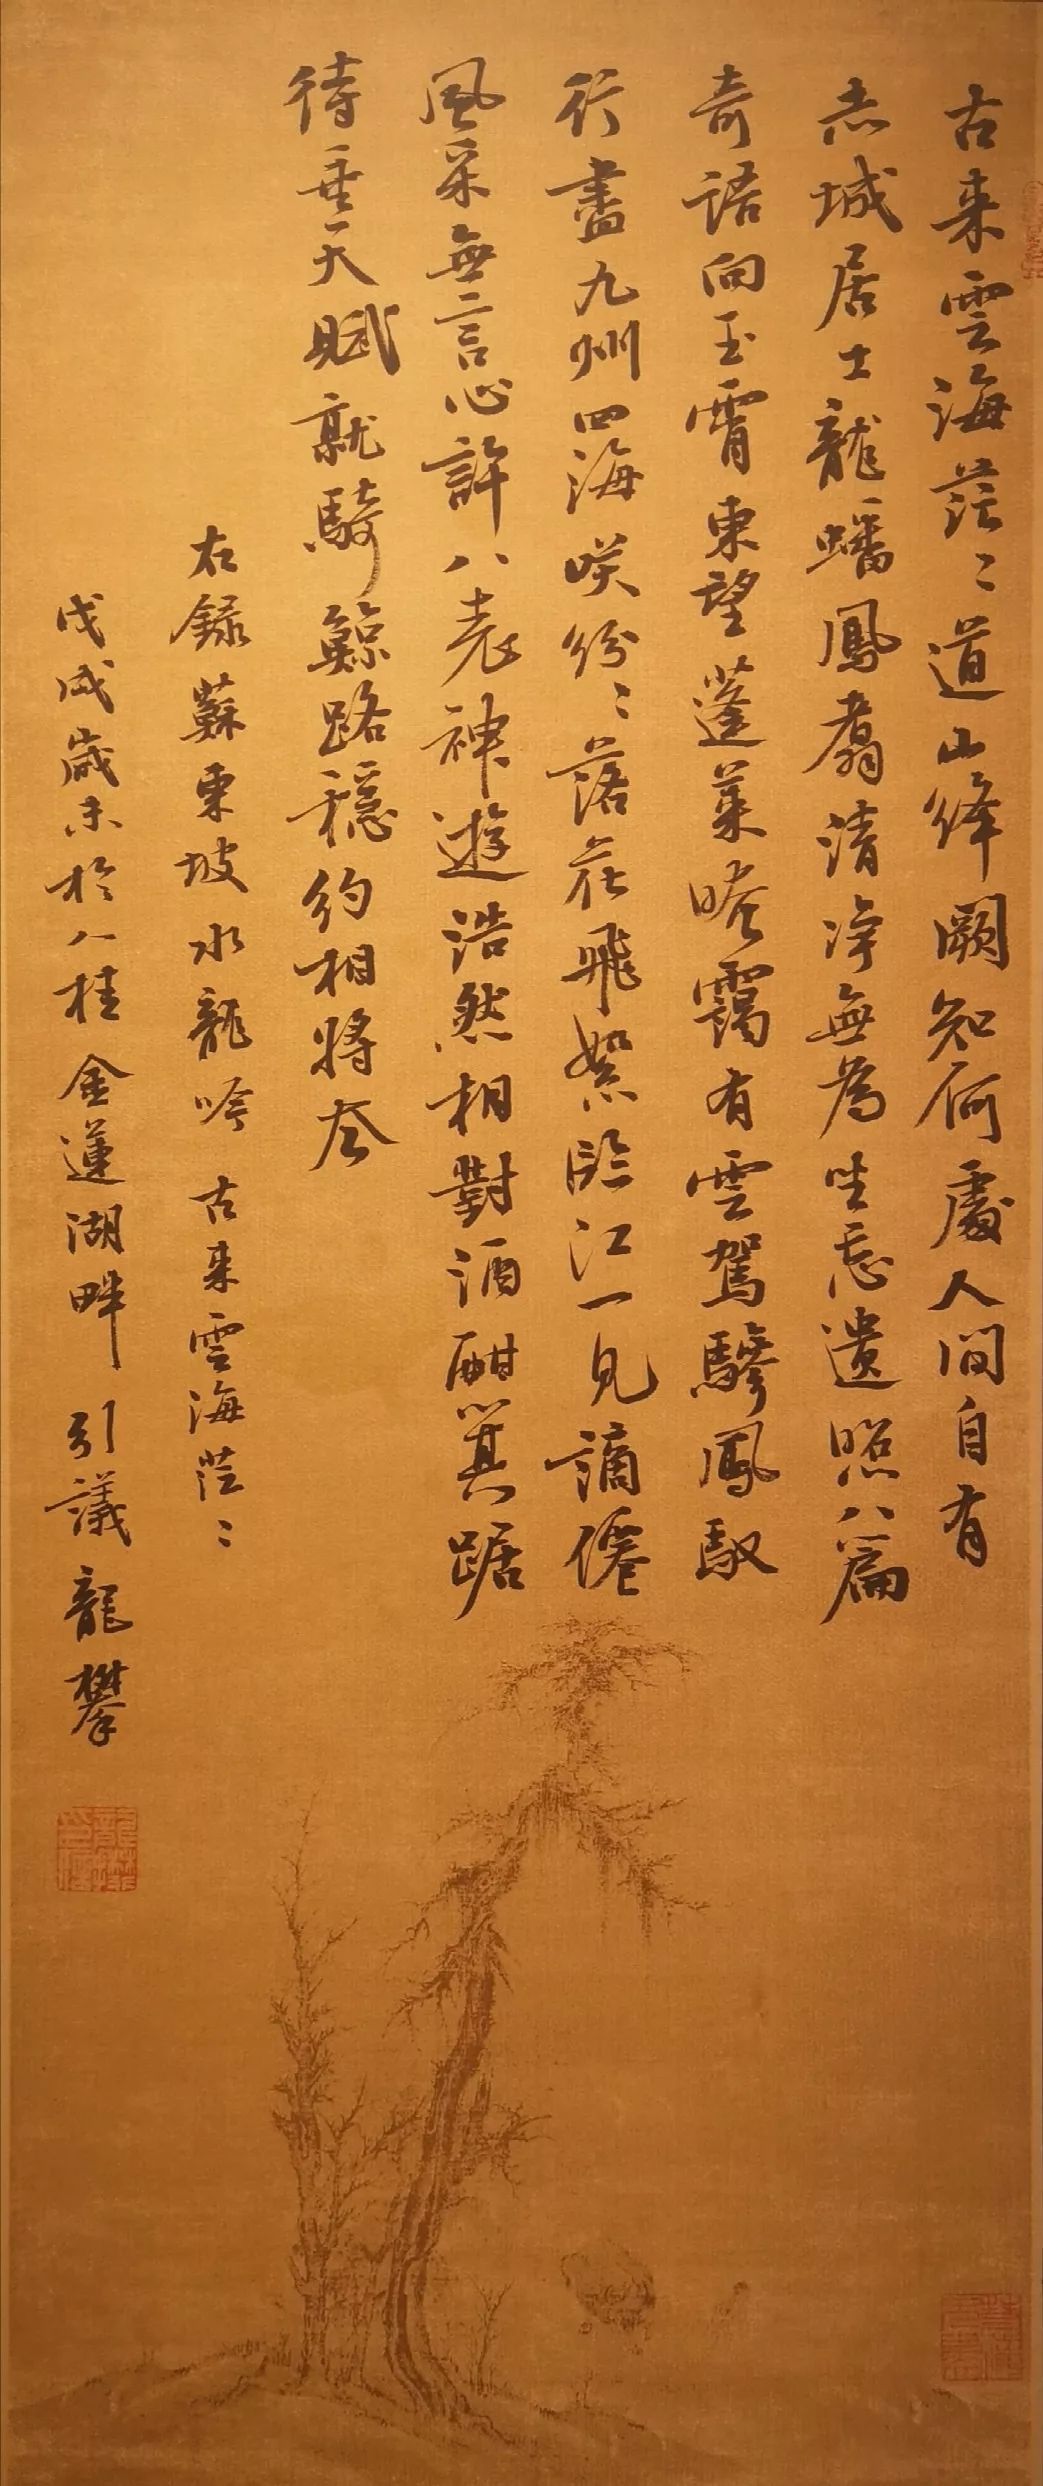 古来雲海茫〻道山絳闕知何處人間自有
赤城居士龍蟠鳳翥清淨無為坐忘遺照八篇
奇語向玉霄東望蓬萊晻靄有雲駕驂鳳馭
行盡九州四海咲紛〻落花飛絮臨江一見謫僊
風采無言心許八表神遊浩然相對酒酣箕踞
待垂天賦就騎鯨路穩約相將去
右錄蘇東坡水龍吟古来雲海茫〻
戊戌歲末於八桂金蓮湖畔引議龍攀